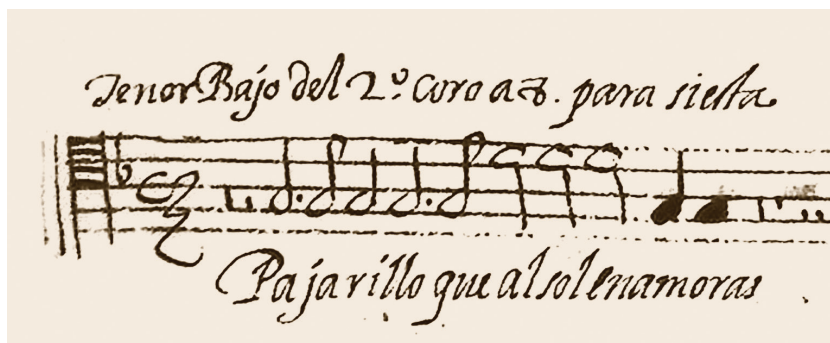 Tenor Bajo del 2º. Coro a 8. para siesta
Pajarillo que al sol enamoras